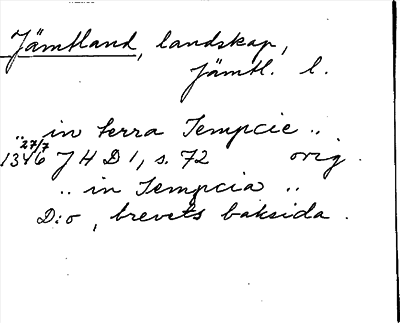 Jämtland, landskap,
Jämtl. l.
.. in terra Tempcie ..
27/7
1346 J H D 1, s. 72 orig.
.. in Tempcia ..
D:o, brevets baksida.